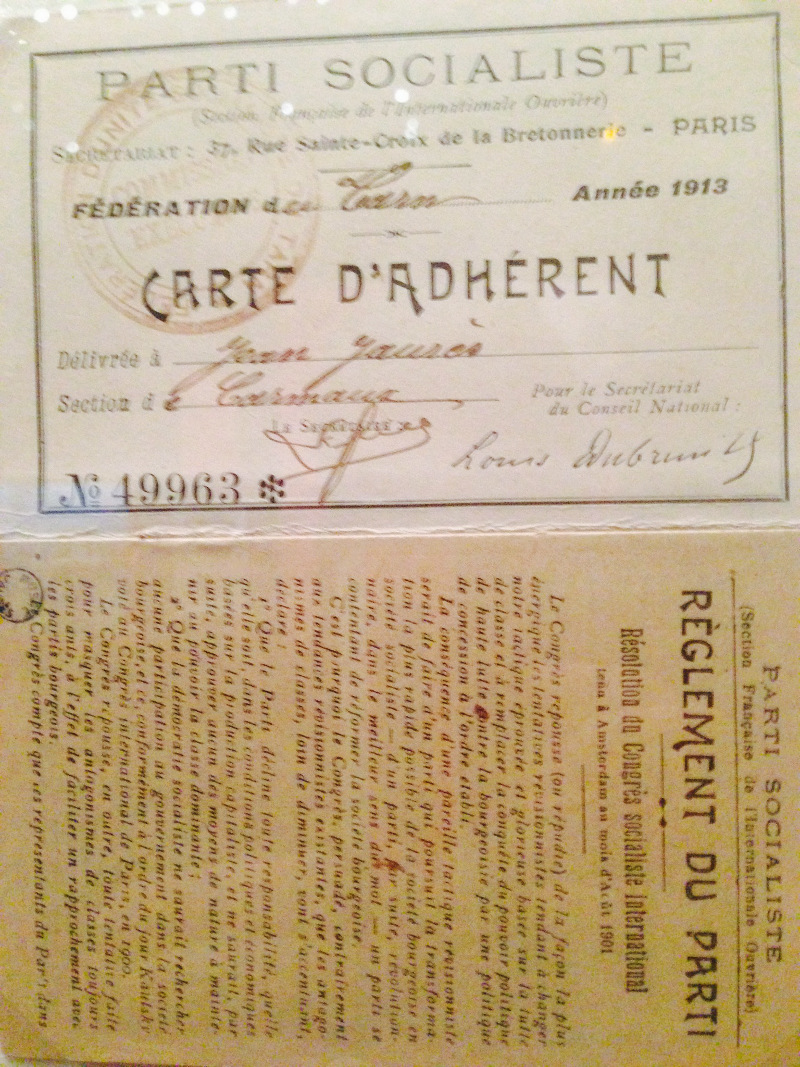 PARTI SOCIALISTE
(Section Française de l'Internationale Ouvrière)
SECRÉTARIAT : 37, Rue Sainte-Croix de la Bretonnerie - PARIS
FÉDÉRATION du Tarn Année 1913
CARTE D'ADHÉRENT
Délivrée à Jean Jaurès
Section de Carmaux
Pour le Secrétariat
du Conseil National :
Louis Dubreuilh
No 49963 *
PARTI SOCIALISTE
(Section Française de l'Internationale Ouvrière)
RÈGLEMENT DU PARTI
Résolution du Congrès socialiste international
tenu à Amsterdam au mois d'Août 1901
Le Congrès repousse (ou répudie) de la façon la plus
énergique les tentatives revisionnistes tendant à changer
notre tactique éprouvée et glorieuse basée sur la lutte
de classe et à remplacer la conquête du pouvoir politique
de haute lutte contre la bourgeoisie par une politique
de concession à l'ordre établi.
La conséquence d'une pareille tactique revisionniste
serait de faire d'un parti qui poursuit la transforma-
tion la plus rapide possible de la société bourgeoise en
société socialiste — d'un parti, par suite, révolution-
naire, dans le meilleur sens du mot — un parti se
contentant de réformer la société bourgeoise.
C'est pourquoi le Congrès, persuadé, contrairement
aux tendances revisionnistes existantes, que les antago-
nismes de classes, loin de diminuer, vont s'accentuant,
déclare :
1° Que le Parti décline toute responsabilité, quelle
qu'elle soit, dans les conditions politiques et économiques
basées sur la production capitaliste, et ne saurait, par
suite, approuver aucun des moyens de nature à mainte-
nir au pouvoir la classe dominante ;
2° Que la démocratie socialiste ne saurait rechercher
aucune participation au gouvernement dans la société
bourgeoise, et ce, conformément à l'ordre du jour Kautsky
voté au Congrès international de Paris, en 1900.
Le Congrès repousse, en outre, toute tentative faite
pour masquer les antagonismes de classes toujours
croissants, à l'effet de faciliter un rapprochement avec
les partis bourgeois.
Le Congrès compte que ses représentants du Parti dans